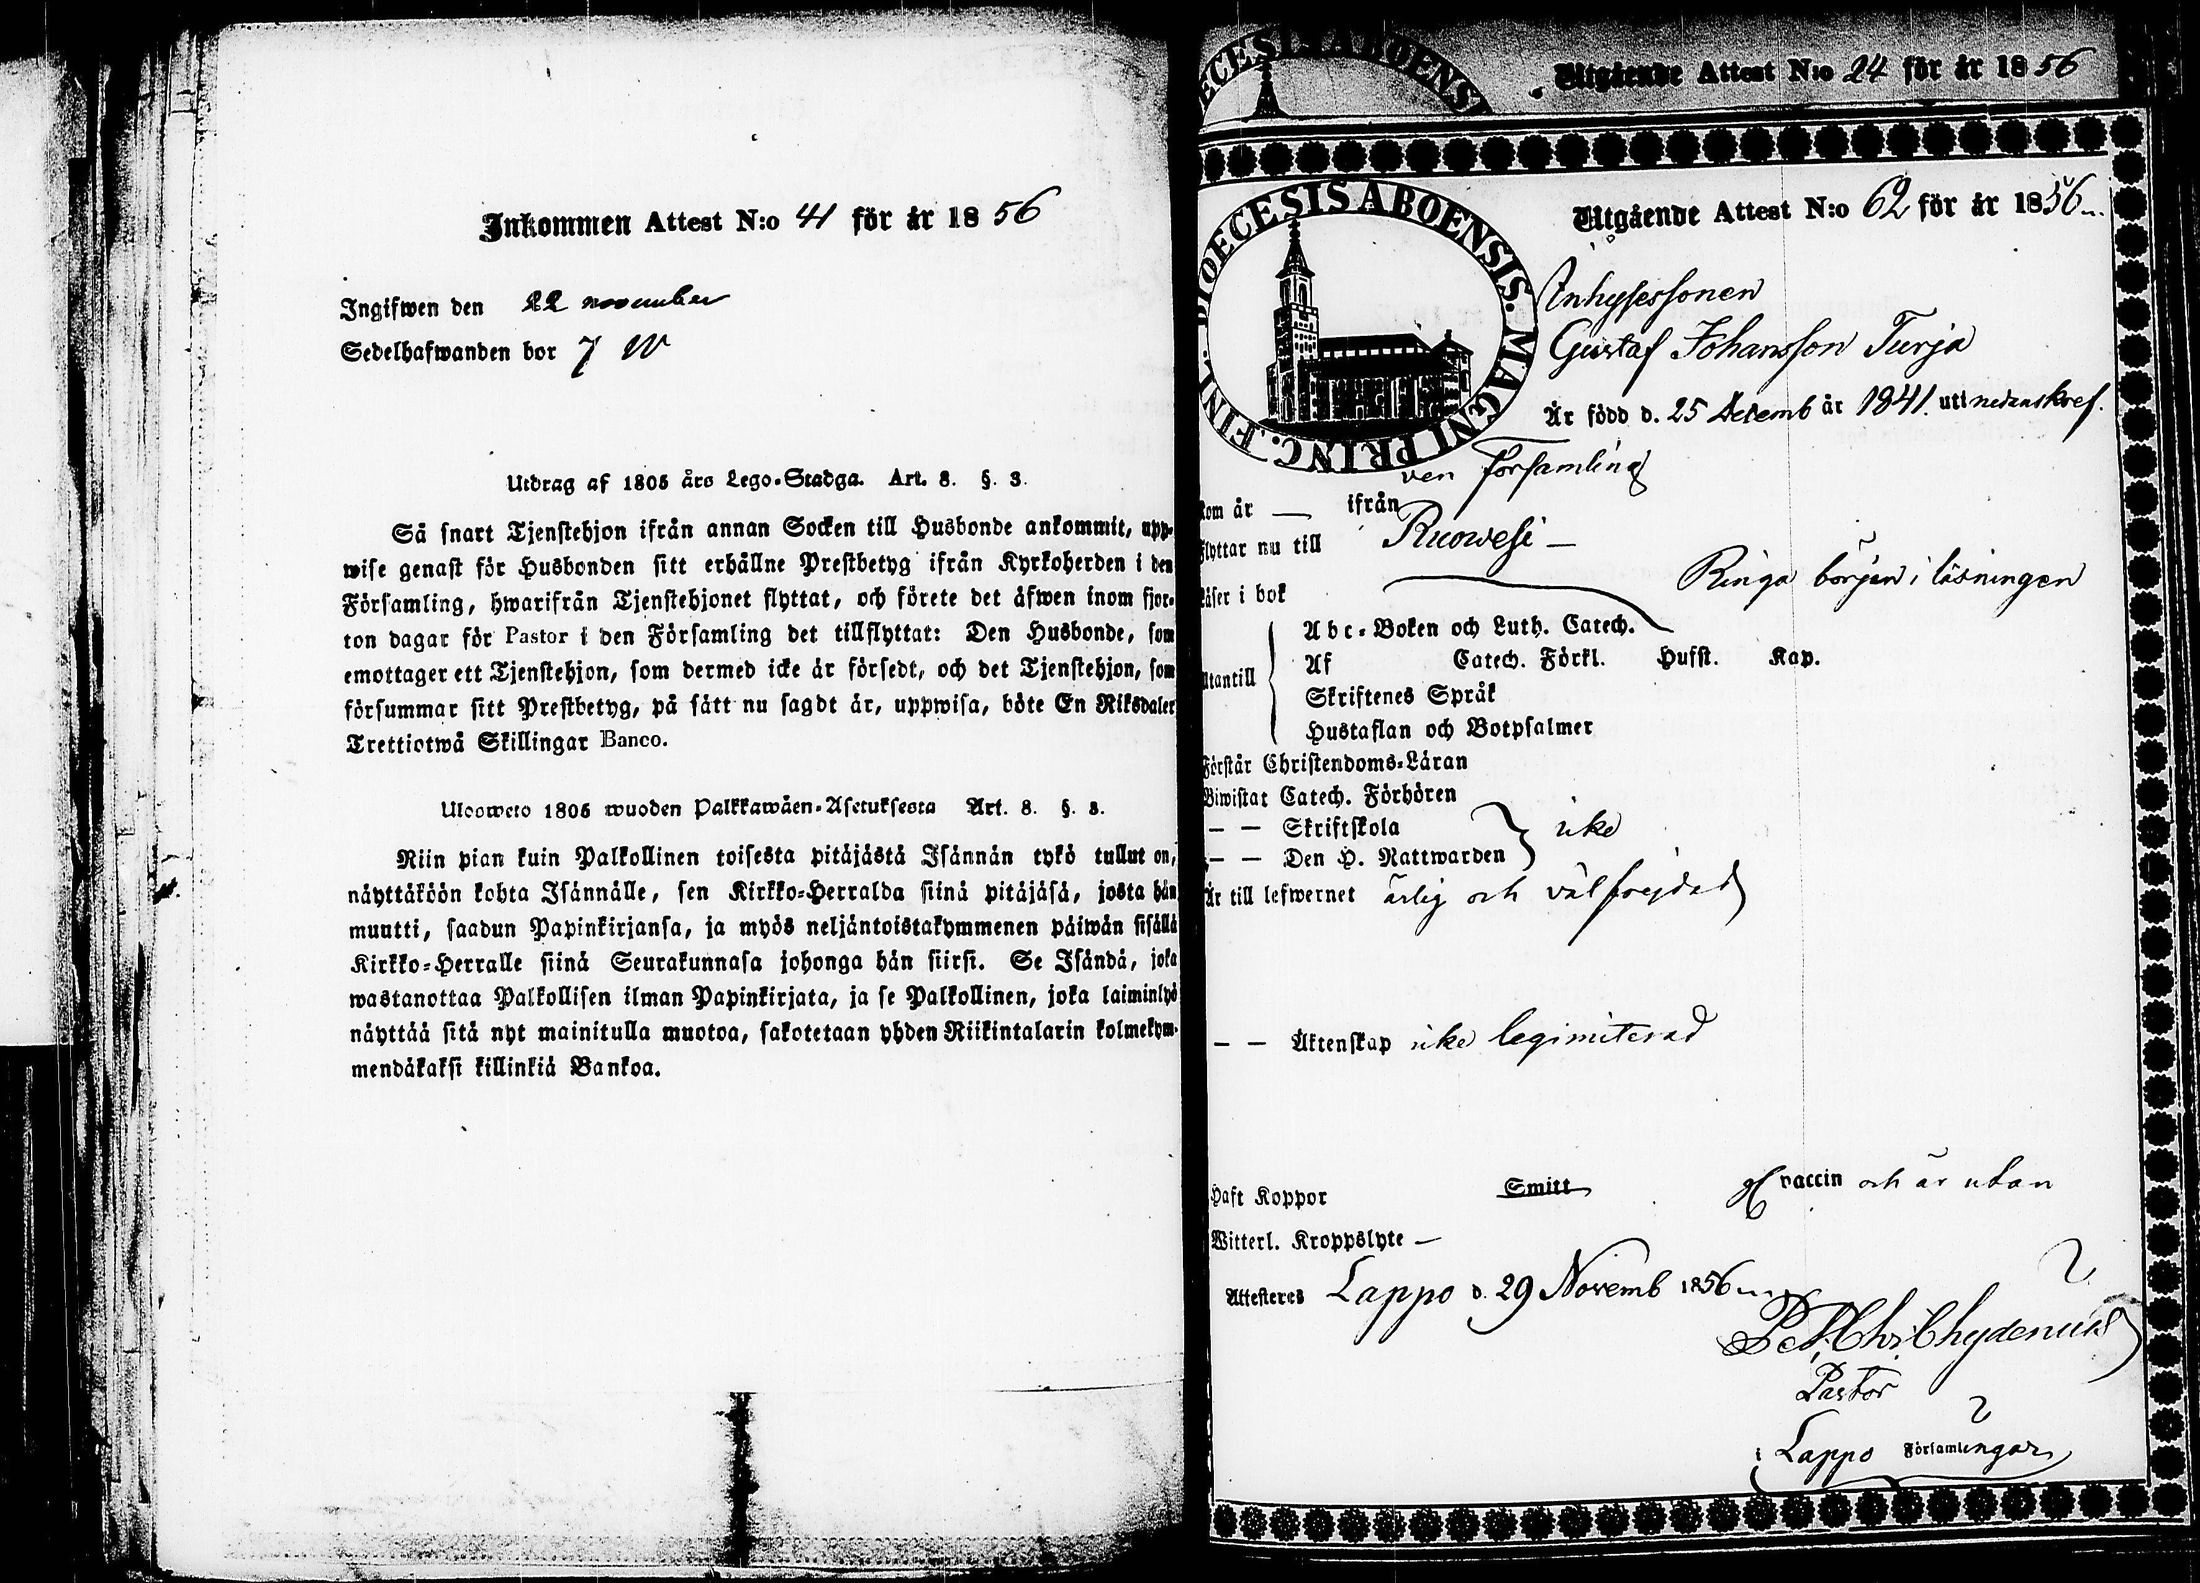 Inkommen Attest N:o 41 för år 1856
Ingifwen den 22 november
Sedelhafwanden bor 7 W
Utdrag af 1805 års Lego-Stadga. Art. 8. §. 3.
Så snart Tjenstehjon ifrån annan Socken till Husbonde ankommit, upp-
wise genast för Husbonden sitt erhållne Prestbetyg ifrån Kyrkoherden i den
Församling, hwarifrån Tjenstehjonet flyttat, och förete det äfwen inom fjor-
ton dagar för Pastor i den Församling det tillflyttat: Den Husbonde, som
emottager ett Tjenstehjon, som dermed icke är försedt, och det Tjenstehjon, som
försummar sitt Prestbetyg, på sätt nu sagdt är, uppwisa, böte En Riksdaler
Trettiotwå Skillingar Banco.
Ulosweto 1805 wuoden Palkkawäen-Asetuksesta Art. 8. §. 3.
Niin pian kuin Palkollinen toisesta pitäjästä Isännän tykö tullut on,
näyttäköön kohta Isännälle, sen Kirkko-Herralda siinä pitäjäsä, josta hän
muutti, saadun Papinkirjansa, ja myös neljäntoistakymmenen päiwän sisällä
Kirkko-Herralle siinä Seurakunnasa johonga hän siirsi. Se Isändä, joka
wastanottaa Palkollisen ilman Papinkirjata, ja se Palkollinen, joka laiminlyö
näyttää sitä nyt mainitulla muotoa, sakotetaan yhden Riikintalarin kolmekym-
mendäkaksi killinkiä Bankoa.
DECESIS ABOENSI
Utgående Attest N:o 24 för år 1856
DIOECESIS ABOENSIS. MAGNI PRINC. FINL.
Utgående Attest N:o 62 för år 1856
Inhysessonen
Gustaf Johansson Turja
Är född d. 25 Decemb år 1841. uti nedanskref.
ven Församling
Kom år — ifrån
Flyttar nu till Ruowesi —
Läser i bok Ringa början i läsningen
Utantill
Abc-Boken och Luth. Catech.
Af Catech. Förkl. Hufst. Kap.
Skriftenes Språk
Hustaflan och Botpsalmer
Förstår Christendoms-Läran
Biwistat Catech. Förhören
— — Skriftskola icke
— — Den H. Nattwarden
Är till lefwernet ärlig och välfrejdad
— — Äktenskap icke legimiterad
Haft Koppor Smitt vaccin och är utan
Witterl. Kroppslyte —
Attesteres Lappo d. 29 Novemb 1856
Pet. Chr. Chydenius
Pastor
i Lappo Församlingar